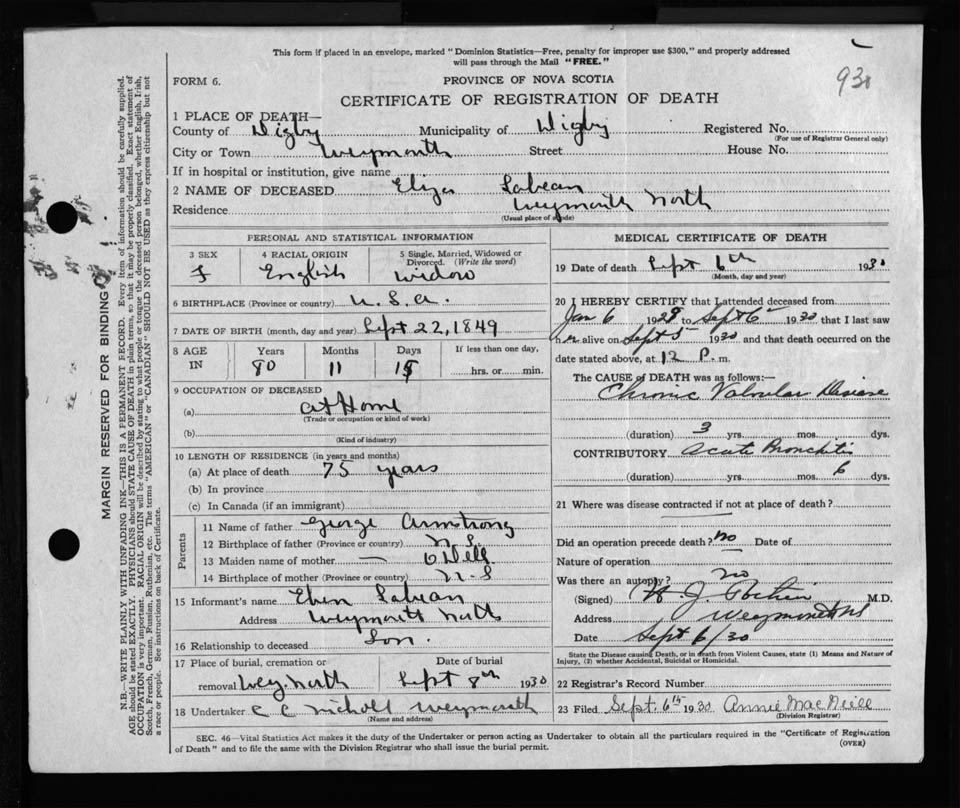 This form if placed in an envelope, marked "Dominion Statistics—Free, penalty for improper use $300," and properly addressed
will pass through the Mail "FREE."
930
FORM 6.
PROVINCE OF NOVA SCOTIA
CERTIFICATE OF REGISTRATION OF DEATH
1 PLACE OF DEATH—
County of Digby Municipality of Digby Registered No.
(For use of Registrar General only)
City or Town Weymouth Street House No.
If in hospital or institution, give name
2 NAME OF DECEASED Eliza Labean
Residence Weymouth North
(Usual place of abode)
PERSONAL AND STATISTICAL INFORMATION
3 SEX 4 RACIAL ORIGIN 5 Single, Married, Widowed or Divorced. (Write the word)
F English Widow
6 BIRTHPLACE (Province or country) U.S.A.
7 DATE OF BIRTH (month, day and year) Sept 22, 1849
8 AGE IN Years Months Days If less than one day,
80 11 15 hrs. or min.
9 OCCUPATION OF DECEASED
(a) at Home
(Trade or occupation or kind of work)
(b)
(Kind of industry)
10 LENGTH OF RESIDENCE (in years and months)
(a) At place of death 75 years
(b) In province
(c) In Canada (if an immigrant)
Parents
11 Name of father George Armstrong
12 Birthplace of father (Province or country) N.S.
13 Maiden name of mother — O'Dell
14 Birthplace of mother (Province or country) N.S
15 Informant's name Eben Labean
Address Weymouth North
16 Relationship to deceased Son.
17 Place of burial, cremation or Date of burial
removal Wey North Sept 8th 1930
18 Undertaker C C Nicholl Weymouth
(Name and address)
MEDICAL CERTIFICATE OF DEATH
19 Date of death Sept 6th 1930
(Month, day and year)
20 I HEREBY CERTIFY that I attended deceased from
Jan 6 1929 to Sept 6 1930 that I last saw
her alive on Sept 5 1930 and that death occurred on the
date stated above, at 12 P. m.
The CAUSE of DEATH was as follows:—
Chronic Valvular Disease
(duration) 3 yrs. mos. dys.
CONTRIBUTORY Acute Bronchitis
(duration) yrs. mos. 6 dys.
21 Where was disease contracted if not at place of death?
Did an operation precede death? no Date of
Nature of operation
Was there an autopsy? no
(Signed) J. M.D.
Address Weymouth NS
Date Sept 6/30
State the Disease causing Death, or in death from Violent Causes, state (1) Means and Nature of
Injury, (2) whether Accidental, Suicidal or Homicidal.
22 Registrar's Record Number
23 Filed Sept. 6th 1930 Annie MacNeill
(Division Registrar)
SEC. 46—Vital Statistics Act makes it the duty of the Undertaker or person acting as Undertaker to obtain all the particulars required in the "Certificate of Registration
of Death" and to file the same with the Division Registrar who shall issue the burial permit.
(OVER)
MARGIN RESERVED FOR BINDING
N.B.—WRITE PLAINLY WITH UNFADING INK—THIS IS A PERMANENT RECORD. Every item of information should be carefully supplied.
AGE should be stated EXACTLY. PHYSICIANS should STATE CAUSE OF DEATH in plain terms, so that it may be properly classified. Exact statement of
OCCUPATION is very important. RACIAL ORIGIN will be described by stating to what people or tongue the deceased person belonged, whether English, Irish,
Scotch, French, German, Russian, Ruthenian, etc. The terms "AMERICAN" or "CANADIAN" SHOULD NOT BE USED as they express citizenship but not
a race or people. See instructions on back of Certificate.